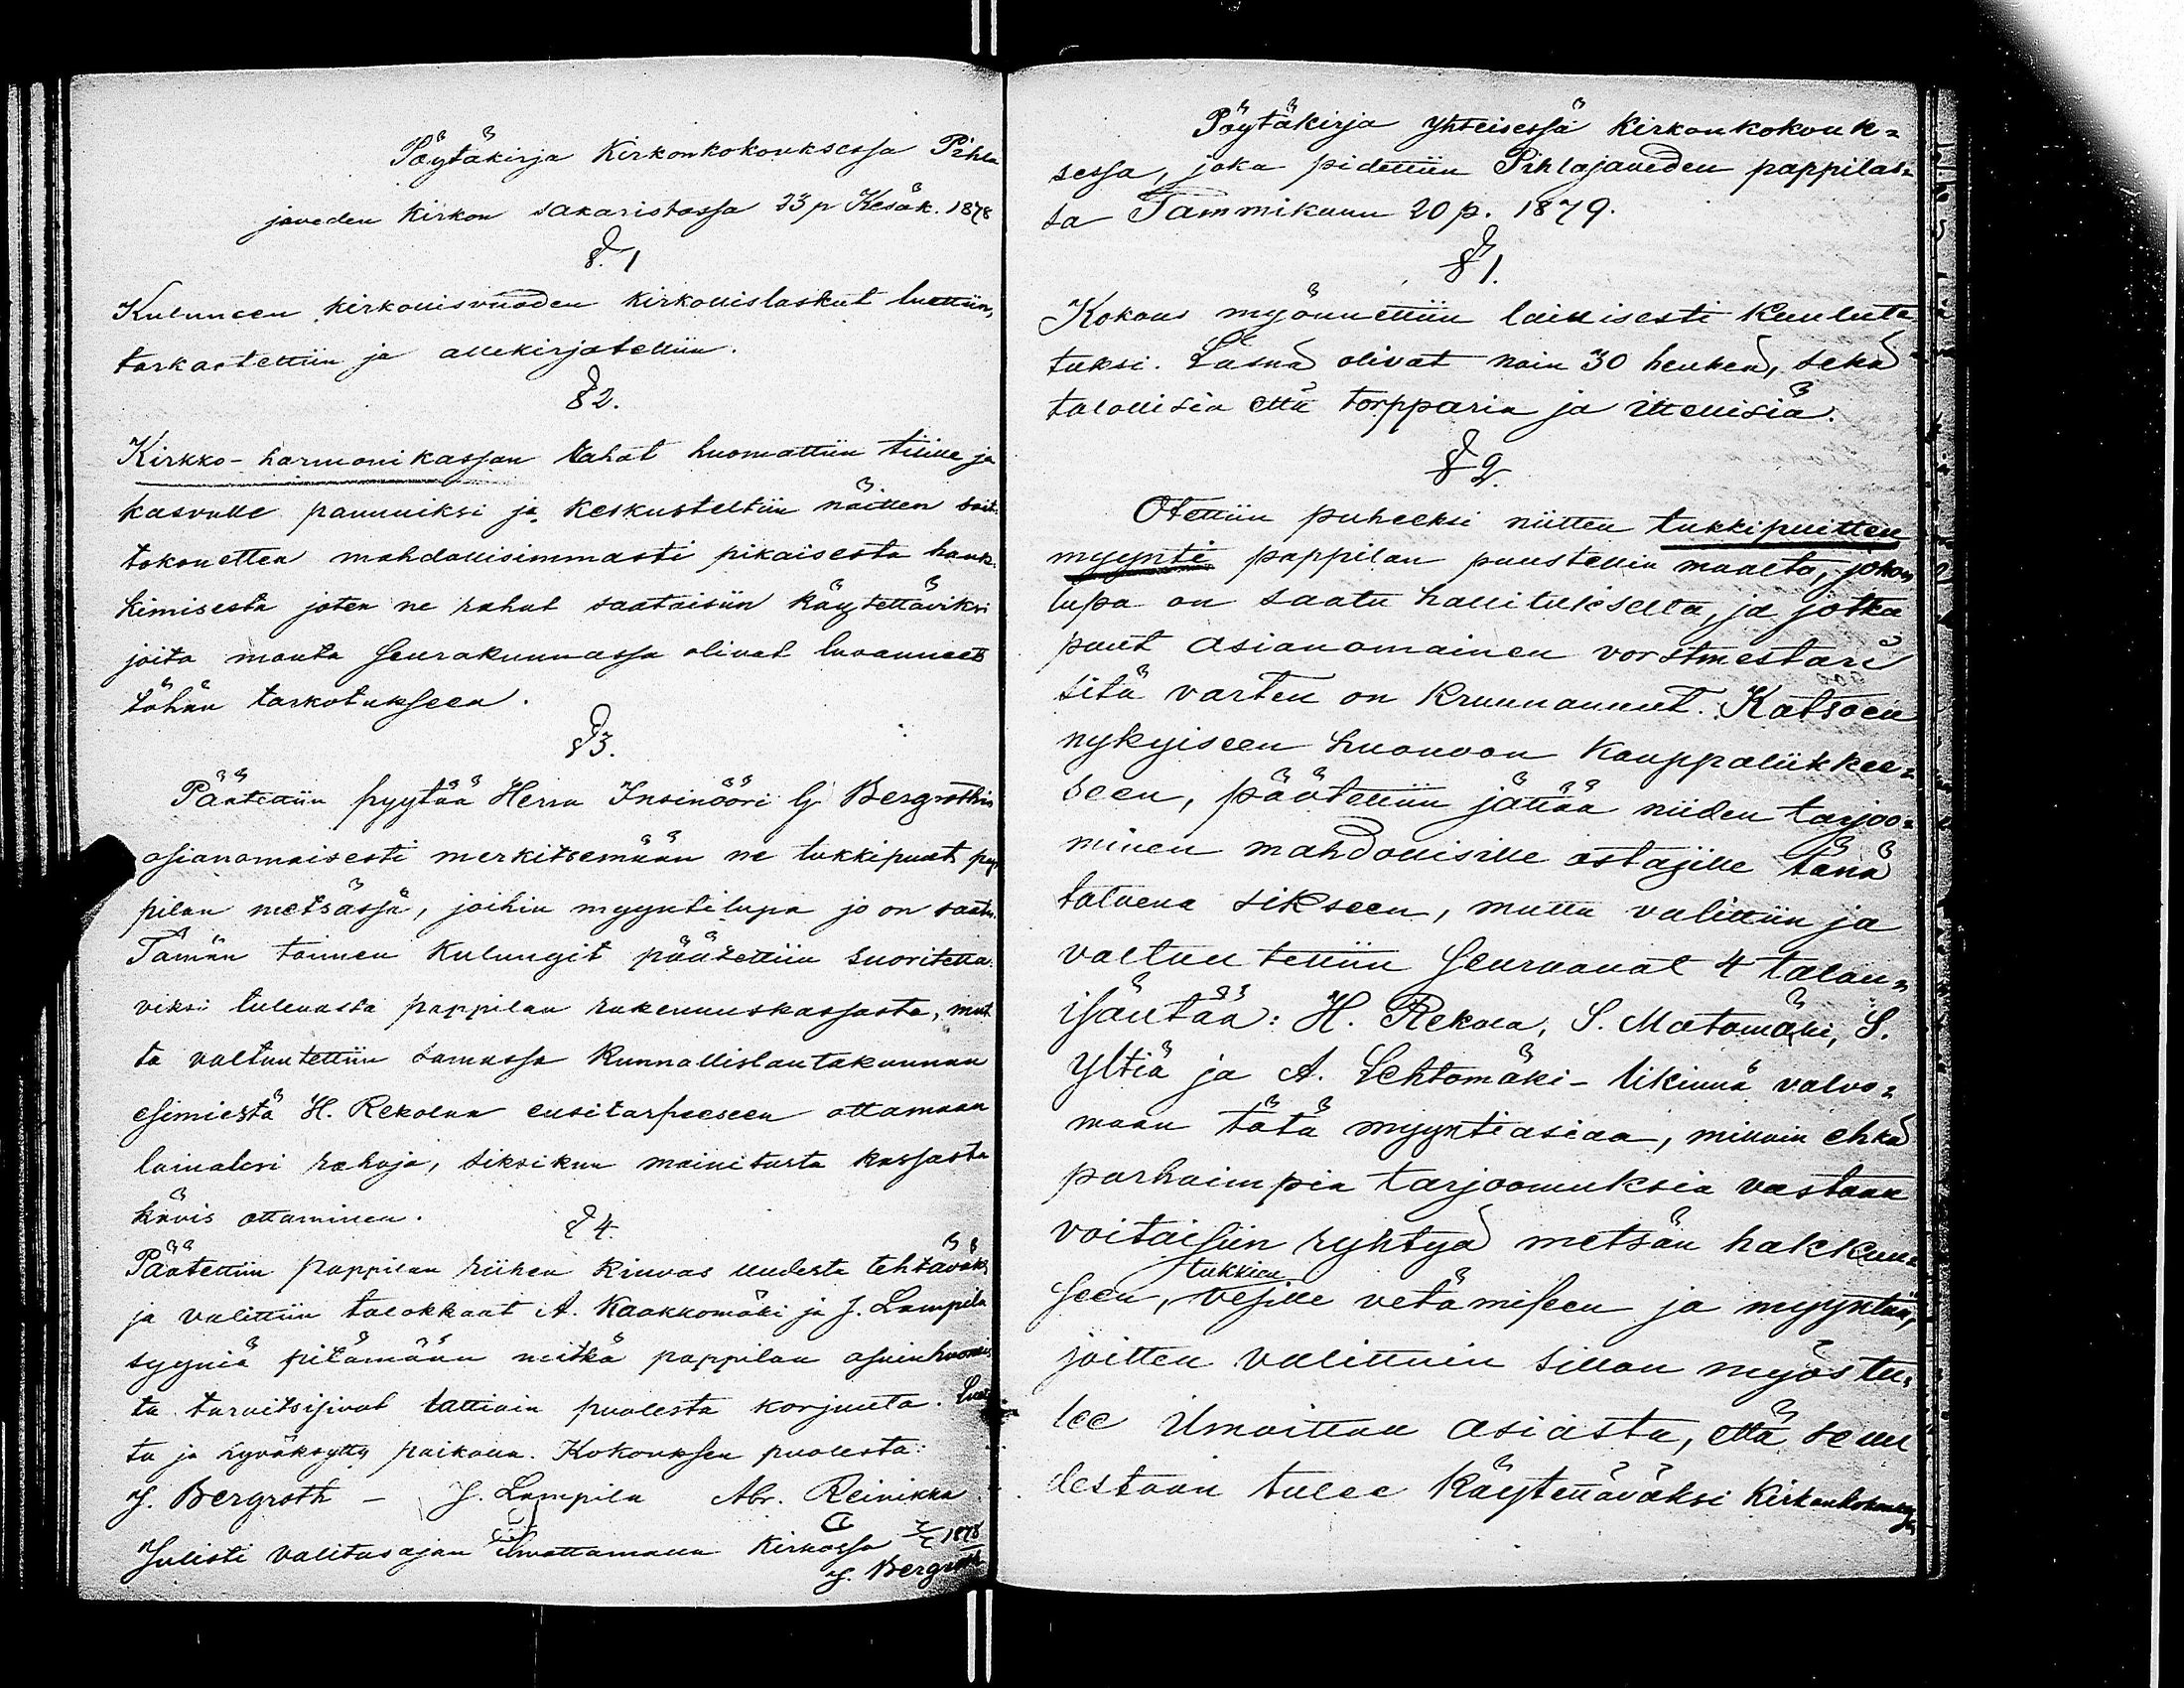 Pöytäkirja Kirkonkokouksessa Pihla
javeden kirkon sakaristossa 23 p Kesäk. 1878
§. 1
Kuluneen kirkollisvuoden kirkollislaskut luettiin,
tarkastettiin ja allekirjotettiin.
§ 2.
Kirkko-harmonikassan rahat huomattiin tilille ja
kasvulle pannuiksi ja keskusteltiin näitten soit-
tokonetten mahdollisimmasti pikaisesta hank-
kimisesta joten ne rahat saataisiin käytettäviksi
joita monta seurakunnassa olivat luvanneet
tähän tarkotukseen.
§ 3.
Päätettiin pyytää Herra Insinööri G Bergrothin
asianomaisesti merkitsemään ne tukkipuut pap
pilan metsässä, joihin myyntilupa jo on saatu.
Tämän toimen kulungit päätettiin suoritetta-
viksi tulevasta pappilan rakennuskassasta, mut
ta valtuutettiin samassa Kunnallislautakunnan
esimiestä H. Rekolaa ensitarpeeseen ottamaan
lainaksi rahoja, siksikun mainitusta kassasta
kävis ottaminen.
§ 4.
Päätettiin pappilan riihen kiuvas uudesta tehtäväksi
ja valittiin talokkaat A. Kaakkomäki ja J. Lampila
syyniä pitämään mitkä pappilan asuinhuoneis
ta tarvitsisivat lattiain puolesta korjuuta. Luet
tu ja hyväksytty paikalla. Kokouksen puolesta:
J. Bergroth - J. Lampila Abr. Reinikka
Julisti valitusajan ilmoittamalla Kirkossa 1878
J. Bergroth
Pöytäkirja yhteisessä kirkonkokouk-
sessa, joka pidettiin Pihlajaveden pappilas-
sa Tammikuun 20 p. 1879.
§ 1.
Kokous myönnettiin laillisesti kuulute
tuksi. Läsnä olivat noin 30 henkeä, sekä
talollisia että torpparia ja itellisiä.
§ 2.
Otettiin puheeksi niitten tukkipuitten
myynti pappilan puustellin maalta, johon
lupa on saatu hallitukselta, ja jotka
puut asianomainen vorstmestari
sitä varten on kruunannut. Katsoen
nykyiseen huonoon kauppaliikkee-
seen, päätettiin jättää niiden tarjoo-
minen mahdollisille ostajille tänä
talvena sikseen, mutta valittiin ja
valtuutettiin seuraavat 4 talon-
isäntää: H. Rekola, S. Matomäki, S.
Yltiä ja A. Lehtomäki-likinnä valvo-
maan tätä myyntiasiaa, milloin ehkä
parhaimpia tarjoomuksia vastaan
voitaisiin ryhtyä metsän hakkuu-
tukkien
seen, vesille vetämiseen ja myyntiin,
joitten valittuin sillon myös tu-
lee ilmoittaa asiasta, että se uu
destaan tulee käytettäväksi kirkonkokouksessa